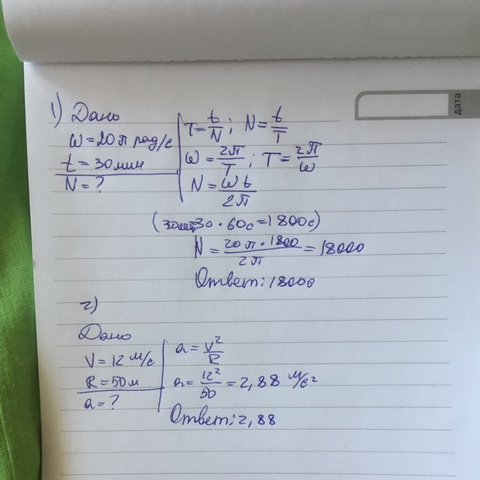 1) Дано
ω = 20π рад/с
t = 30 мин
N = ?
T = t/N ; N = t/T
ω = 2π/T ; T = 2π/ω
N = ωt/2π
(30 · 60с = 1800с)
N = 20π · 1800/2π = 18000
Ответ: 18000
2)
Дано
V = 12 м/с
R = 50м
a = ?
a = V²/R
a = 12²/50 = 2,88 м/с²
Ответ: 2,88
дата